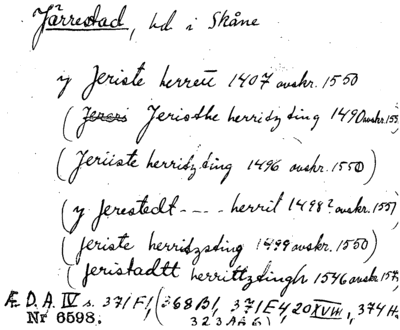 Järrestad, hd i Skåne
y Jeriste herrett 1407 avskr. 1550
( Jeristhe herridzding 1490 avskr. 155
(Jeriiste herridzding 1496 avskr. 1550)
(y Jerestedt --- herrit 1498? avskr. 155)
(Jeriste herridzsting 1499 avskr. 1550)
(Jeristadtt herrittzdingh 1546 avskr. 15
Æ. D. A. IV s. 371 F!, (368 B1, 371 E4, 20 XVIII, 374 H.
Nr 6598. 323 A66)